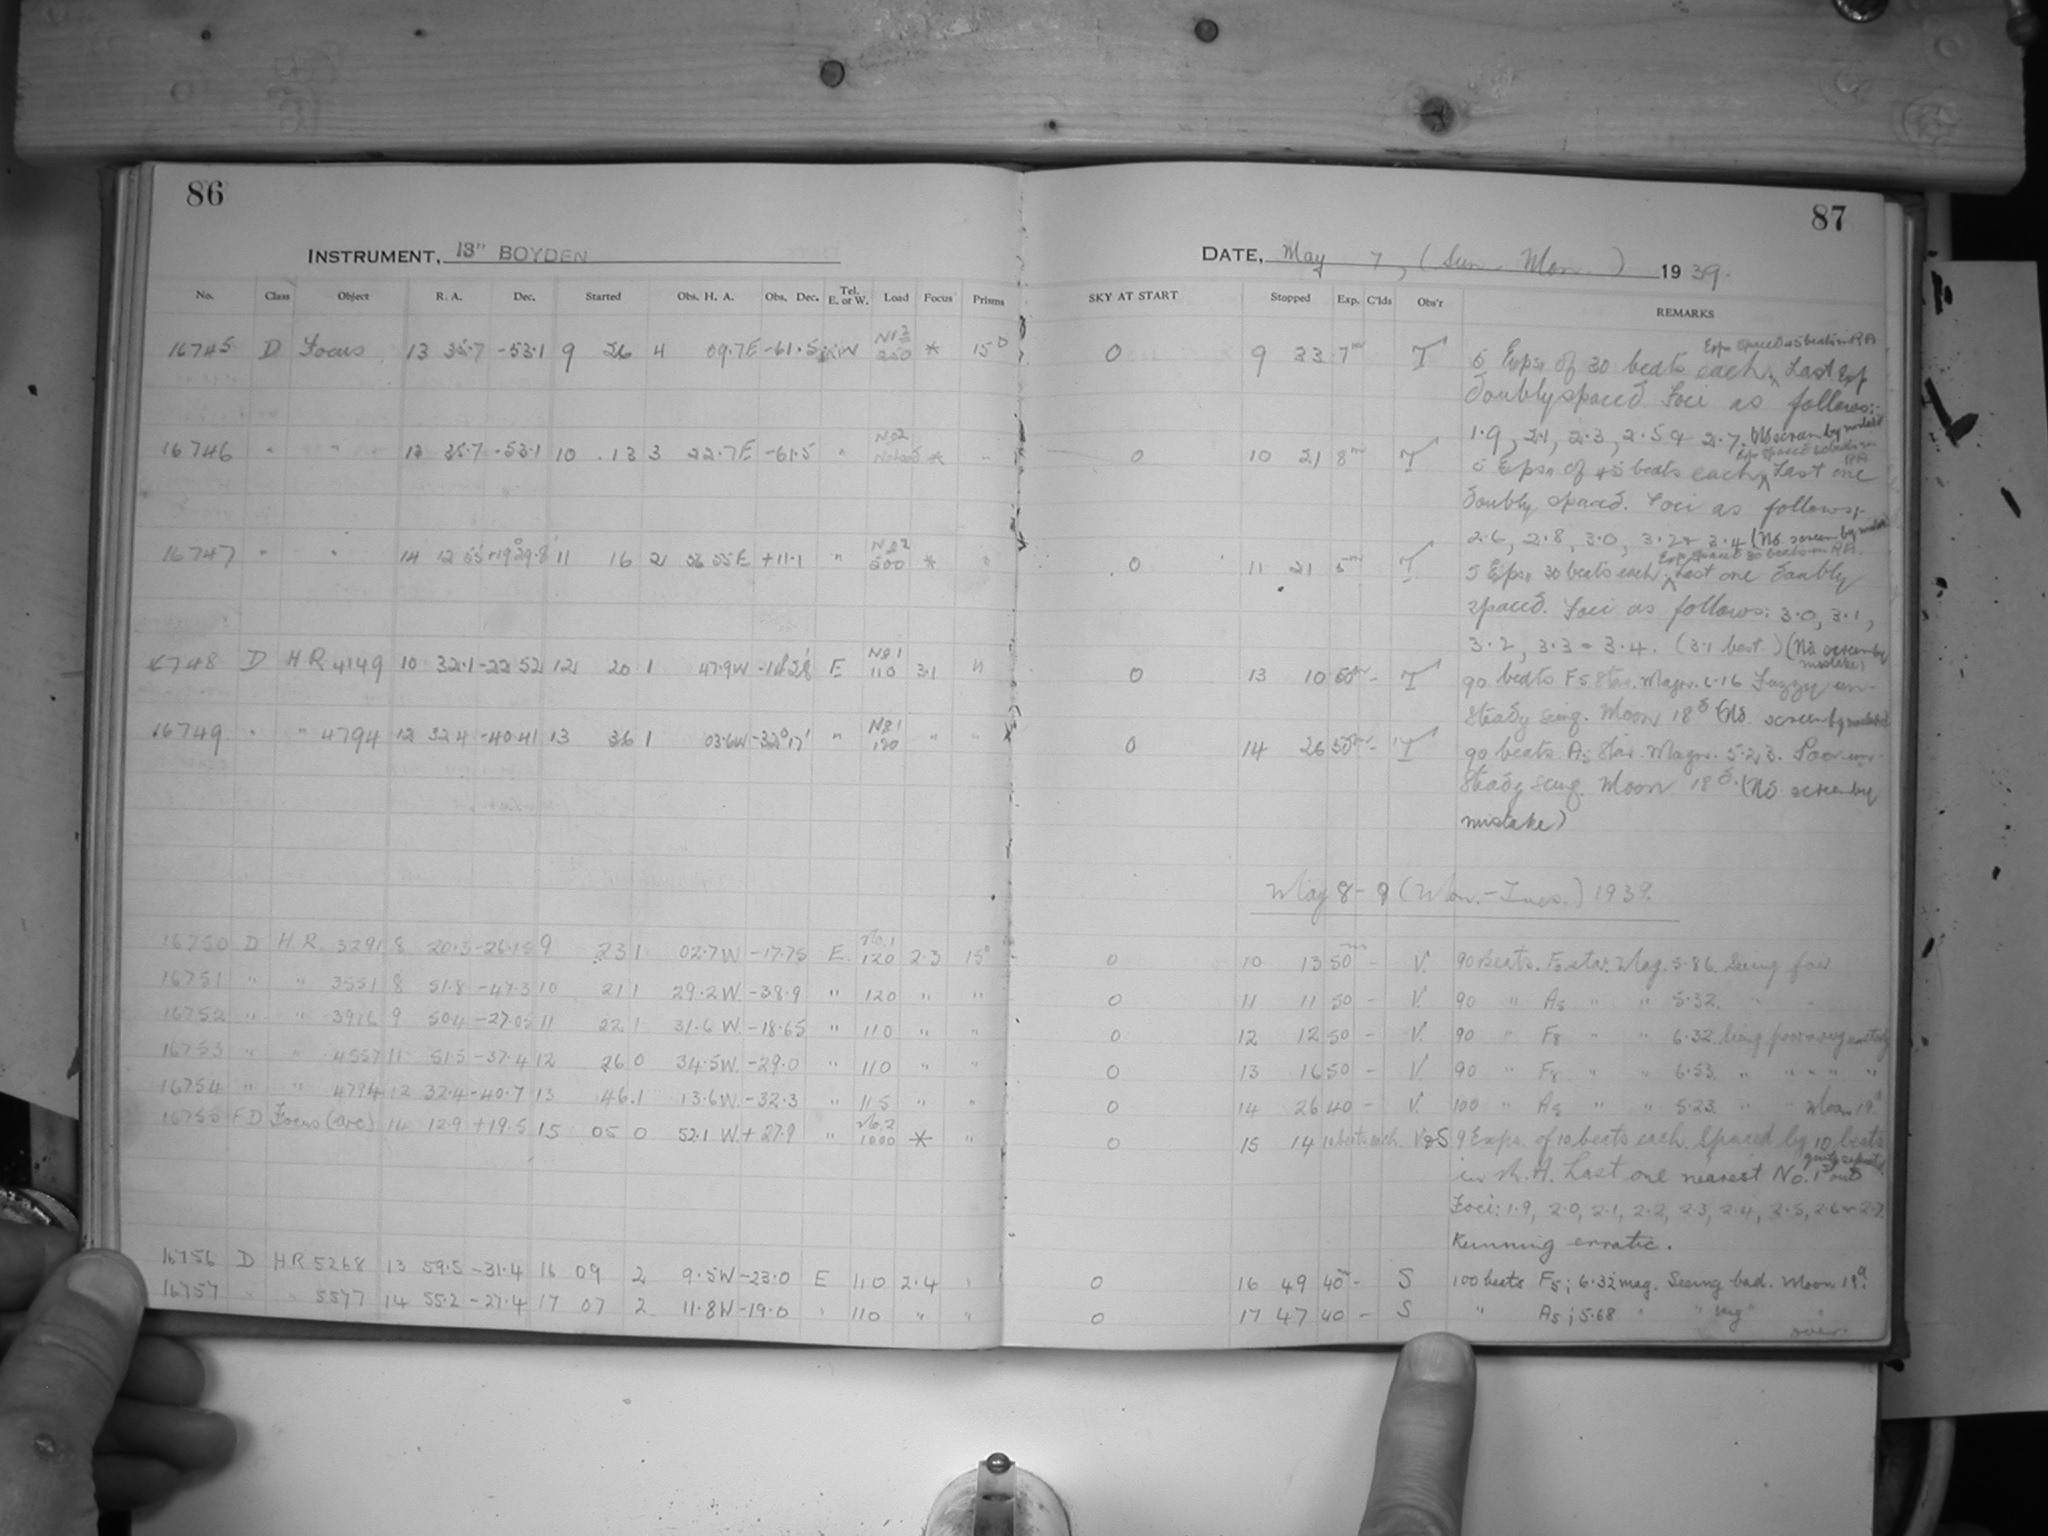 86
87
INSTRUMENT, 13" BOYDEN
DATE, May 7, (Sun. Mon.) 1939.
No. Class Object R. A. Dec. Started Obs. H. A. Obs. Dec. Tel. E. or W. Load Focus Prisms
SKY AT START Stopped Exp. C'lds Obs'r REMARKS
16745 D Focus 13 35.7 -53.1 9 26 4 09.7E -61.5 250 * 15° 0 9 33 7m T 5 Exps of 30 beats each, Last Exp
doubly spaced Foci as follows:-
1.9, 2.1, 2.3, 2.5 & 2.7.
16746 " " " 13 35.7 -53.1 10 13 3 22.7E -61.5 " No 2 * " 0 10 21 8m T 5 Exps of beats each, Last one
doubly spaced. Foci as follows;-
2.6, 2.8, 3.0, 3.2 & 3.4 (No screen by mistake
16747 " " 14 12 55 +19°29.8' 11 16 2 36 55E +11.1 " No 2 500 * " 0 11 21 5m T 5 Exps 30 beats each, Last one doubly
spaced. Foci as follows: 3.0, 3.1,
3.2, 3.3 & 3.4. (3.1 best.) (No screen by mistake)
16748 D HR 4149 10 32.1 -22 52 12 20 1 47.9W E No 1 110 3.1 " 0 13 10 50m - T 90 beats F5 Star. Magn. 6.16 Fuzzy un-
steady seeing. Moon 18d (No screen by mistake)
16749 " " 4794 12 32.4 -40.41 13 36 1 03.6W -32°17' " No 1 " " 0 14 26 50m - T 90 beats A5 Star. Magn. 5.23. Poor un-
steady seeing. Moon 18d. (No screen by
mistake)
May 8-9 (Mon.-Tues.) 1939.
16750 D H.R. 3291 8 20.3 -26.15 9 23 1 02.7W -17.75 E. No.1 120 2.3 15° 0 10 13 50m - V. 90 Beats. star. Mag. 5.86. Seeing fair
16751 " " 3551 8 51.8 -47.3 10 21 1 29.2W. -38.9 " 120 " " 0 11 11 50 - V. 90 " A5 " " 5.32. " "
16752 " " 3916 9 50.4 -27.05 11 22 1 31.6 W. -18.65 " 110 " " 0 12 12 50 - V. 90 " F8 " " 6.32. Seeing poor & very unsteady
16753 " " 4557 11 51.5 -37.4 12 26 0 34.5W. -29.0 " 110 " " 0 13 16 50 - V. 90 " F8 " " 6.53. " " " "
16754 " " 4794 12 32.4 -40.7 13 46 1 13.6W. -32.3 " 115 " " 0 14 26 40 - V. 100 " A5 " " 5.23. " " Moon 19d
16755 FD Focus (arc) 14 12.9 +19.5 15 05 0 52.1 W + 27.9 " No.2 1000 * " 0 15 14 10 beats each. V&S 9 Exps. of 10 beats each. Spaced by 10 beats
in R.A. Last one nearest No. 1 and
Foci: 1.9, 2.0, 2.1, 2.2, 2.3, 2.4, 2.5, 2.6 & 2.7.
Running erratic.
16756 D HR 5268 13 59.5 -31.4 16 09 2 9.5W -23.0 E 110 2.4 " 0 16 49 40m - S 100 beats F5; 6.32 mag. Seeing bad. Moon 19d.
16757 " " 5577 14 55.2 -27.4 17 07 2 11.8W -19.0 " 110 " " 0 17 47 40 - S " A5; 5.68 " " "
over.